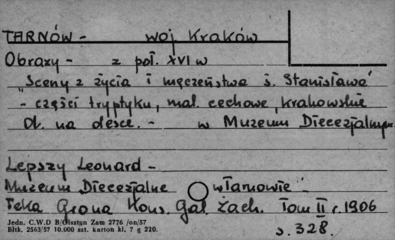 TARNÓW - woj Kraków
Obrazy - z poł. XVI w
"Sceny z życia i męczeństwa ś. Stanisława"
- części tryptyku, mal. cechowe, krakowskie
Ol. na desce. - w Muzeum Diecezjalnym
Lepszy Leonard -
Muzeum Diecezjalne w Tarnowie
Teka Grona Kons. Gal. Zach. Tom II r. 1906
s. 328.
Jedn. C.W.D B/Olsztyn Zam 2776 /on/57
Bltk. 2563/57 10.000 szt. karton kl. 7 g 220.